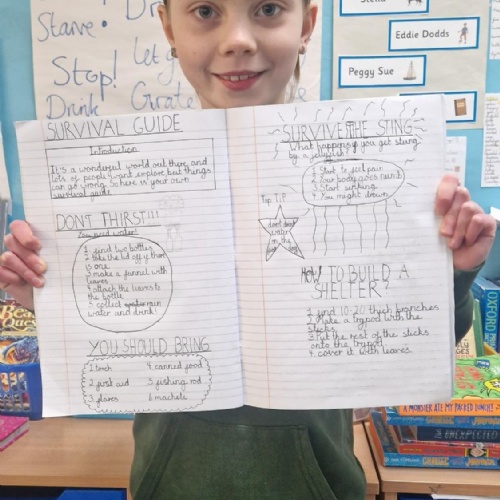 Starve!
Stop!
Drink
Let
Grate
Stella
Eddie Dodds
Peggy Sue
SURVIVAL GUIDE
Introduction
It's a wonderful world out there and
lots of people want explore but things
can go wrong. So here is your own
survival guide.
DON'T THIRST!!!
You need water!
1. find two bottles
2. take the lid off if there
is one
3. make a funnel with
leaves
4. attach the leaves to
the bottle
5. collect water rain
water and drink!
YOU SHOULD BRING
1. torch
2. first aid
3. flares
4. canned food
5. fishing rod
6. machete
SURVIVE THE STING
What happens if you get stung
by a jellyfish?
1. Start to feel pain
2. Your body goes numb
3. Start sinking
4. You might drown
Top TIP
don't drink
water
in the
HOW TO BUILD A
SHELTER?
1. find 10-20 thick branches
2. Make a trypod with the
sticks
3. Put the rest of the sticks
onto the trypod
4. cover it with leaves
OXFORD
A MONSTER ATE MY PACKED LUNCH!